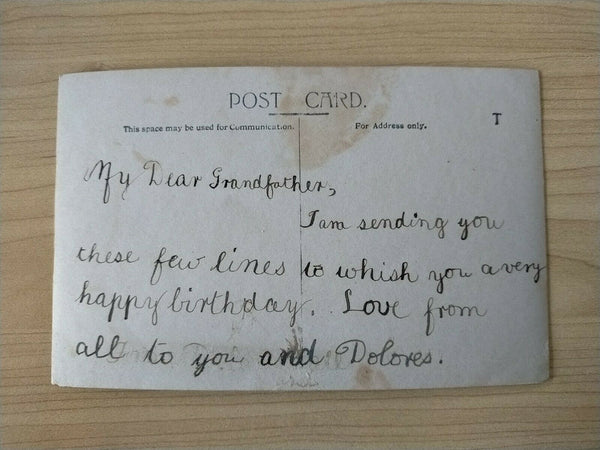 POST CARD.
This space may be used for Communication.
For Address only.
T
My Dear Grandfather,
I am sending you
these few lines to whish you a very
happy birthday. Love from
all to you and Dolores.